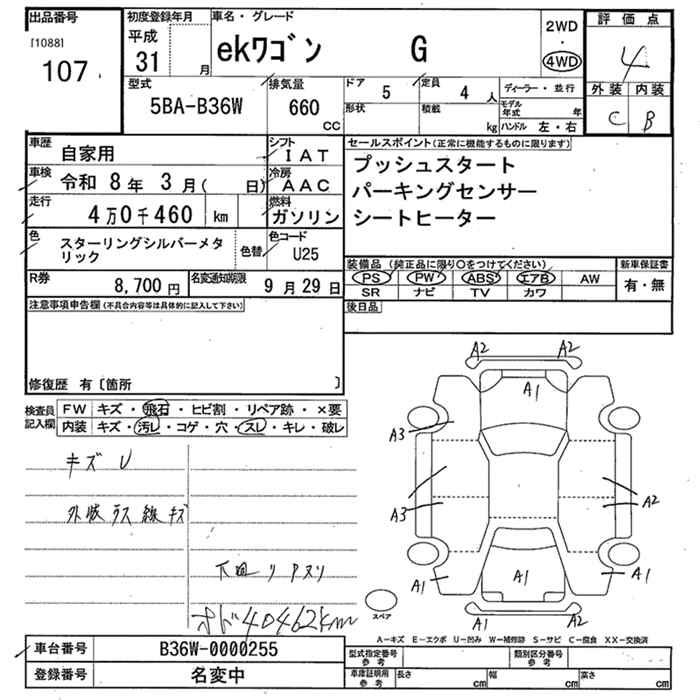 出品番号
[1088]
107
初度登録年月
平成
31
月
車名・グレード
ekワゴン G
2WD
・
4WD
評価点
4
外装 内装
C B
型式
5BA-B36W
排気量
660
CC
ドア
5
形状
定員
4人
積載
kg
ディーラー・並行
モデル年式 年
ハンドル 左・右
車歴
自家用
シフト
IAT
車検
令和 8年 3月( 日)
冷房
AAC
走行
4万0千460 km
燃料
ガソリン
色
スターリングシルバーメタ
リック
色替
色コード
U25
R券
8,700円
名変通知期限
9月29日
セールスポイント(正常に機能するものに限ります)
プッシュスタート
パーキングセンサー
シートヒーター
装備品(純正品に限り○をつけてください)
PS PW ABS エアB AW
SR ナビ TV カワ
新車保証書
有・無
後日品
注意事項申告欄(不具合内容等は具体的に記入して下さい)
修復歴 有〔箇所 〕
検査員
記入欄
FW キズ・飛石・ヒビ割・リペア跡・×要
内装 キズ・汚レ・コゲ・穴・スレ・キレ・破レ
キズ U
外装 ラス 線キズ
下廻り Pヌリ
オド40462km
A2 A2
A1
A3
A3 A2
A1 A1 A1
A2 A2
スペア
A-キズ E-エクボ U-凹み W-補修跡 S-サビ C-腐食 XX-交換済
車台番号
B36W-0000255
登録番号
名変中
型式指定番号
参考
類別区分番号
参考
車庫証明用
参考
長さ cm
幅 cm
高さ cm